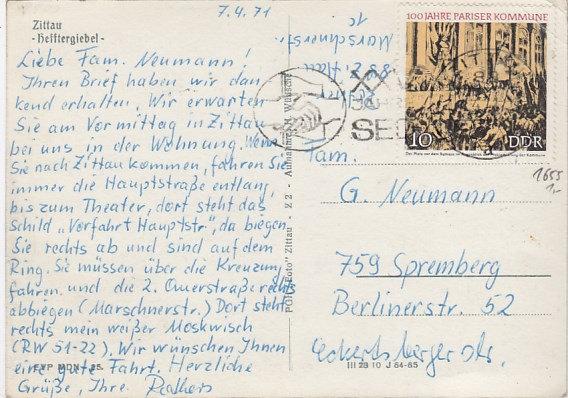 Zittau
- Hefftergiebel -
7.4.71
Liebe Fam. Neumann!
Ihren Brief haben wir dan
kend erhalten. Wir erwarten
Sie am Vormittag in Zittau
bei uns in der Wohnung. Wenn
Sie nach Zittau kommen, fahren Sie
immer die Hauptstraße entlang,
bis zum Theater, dort steht das
Schild „Vorfahrt Hauptstr", da biegen
Sie rechts ab und sind auf dem
Ring. Sie müssen über die Kreuzung
fahren und die 2. Querstraße rechts
abbiegen (Marschnerstr.) Dort steht
rechts mein weißer Moskwisch
(RW 51-22). Wir wünschen Ihnen
eine gute Fahrt. Herzliche
Grüße, Ihre
EVP MDN -,25
PGH „Foto" Zittau - Z 2 - Aufnahme: N. Wünsche
Marschnerstr.
1c
100 JAHRE PARISER KOMMUNE
10 DDR
XXV
JAHRE
SED
Fam.
G. Neumann
1655
1,-
759 Spremberg
Berlinerstr. 52
III 23 10 J 54-65